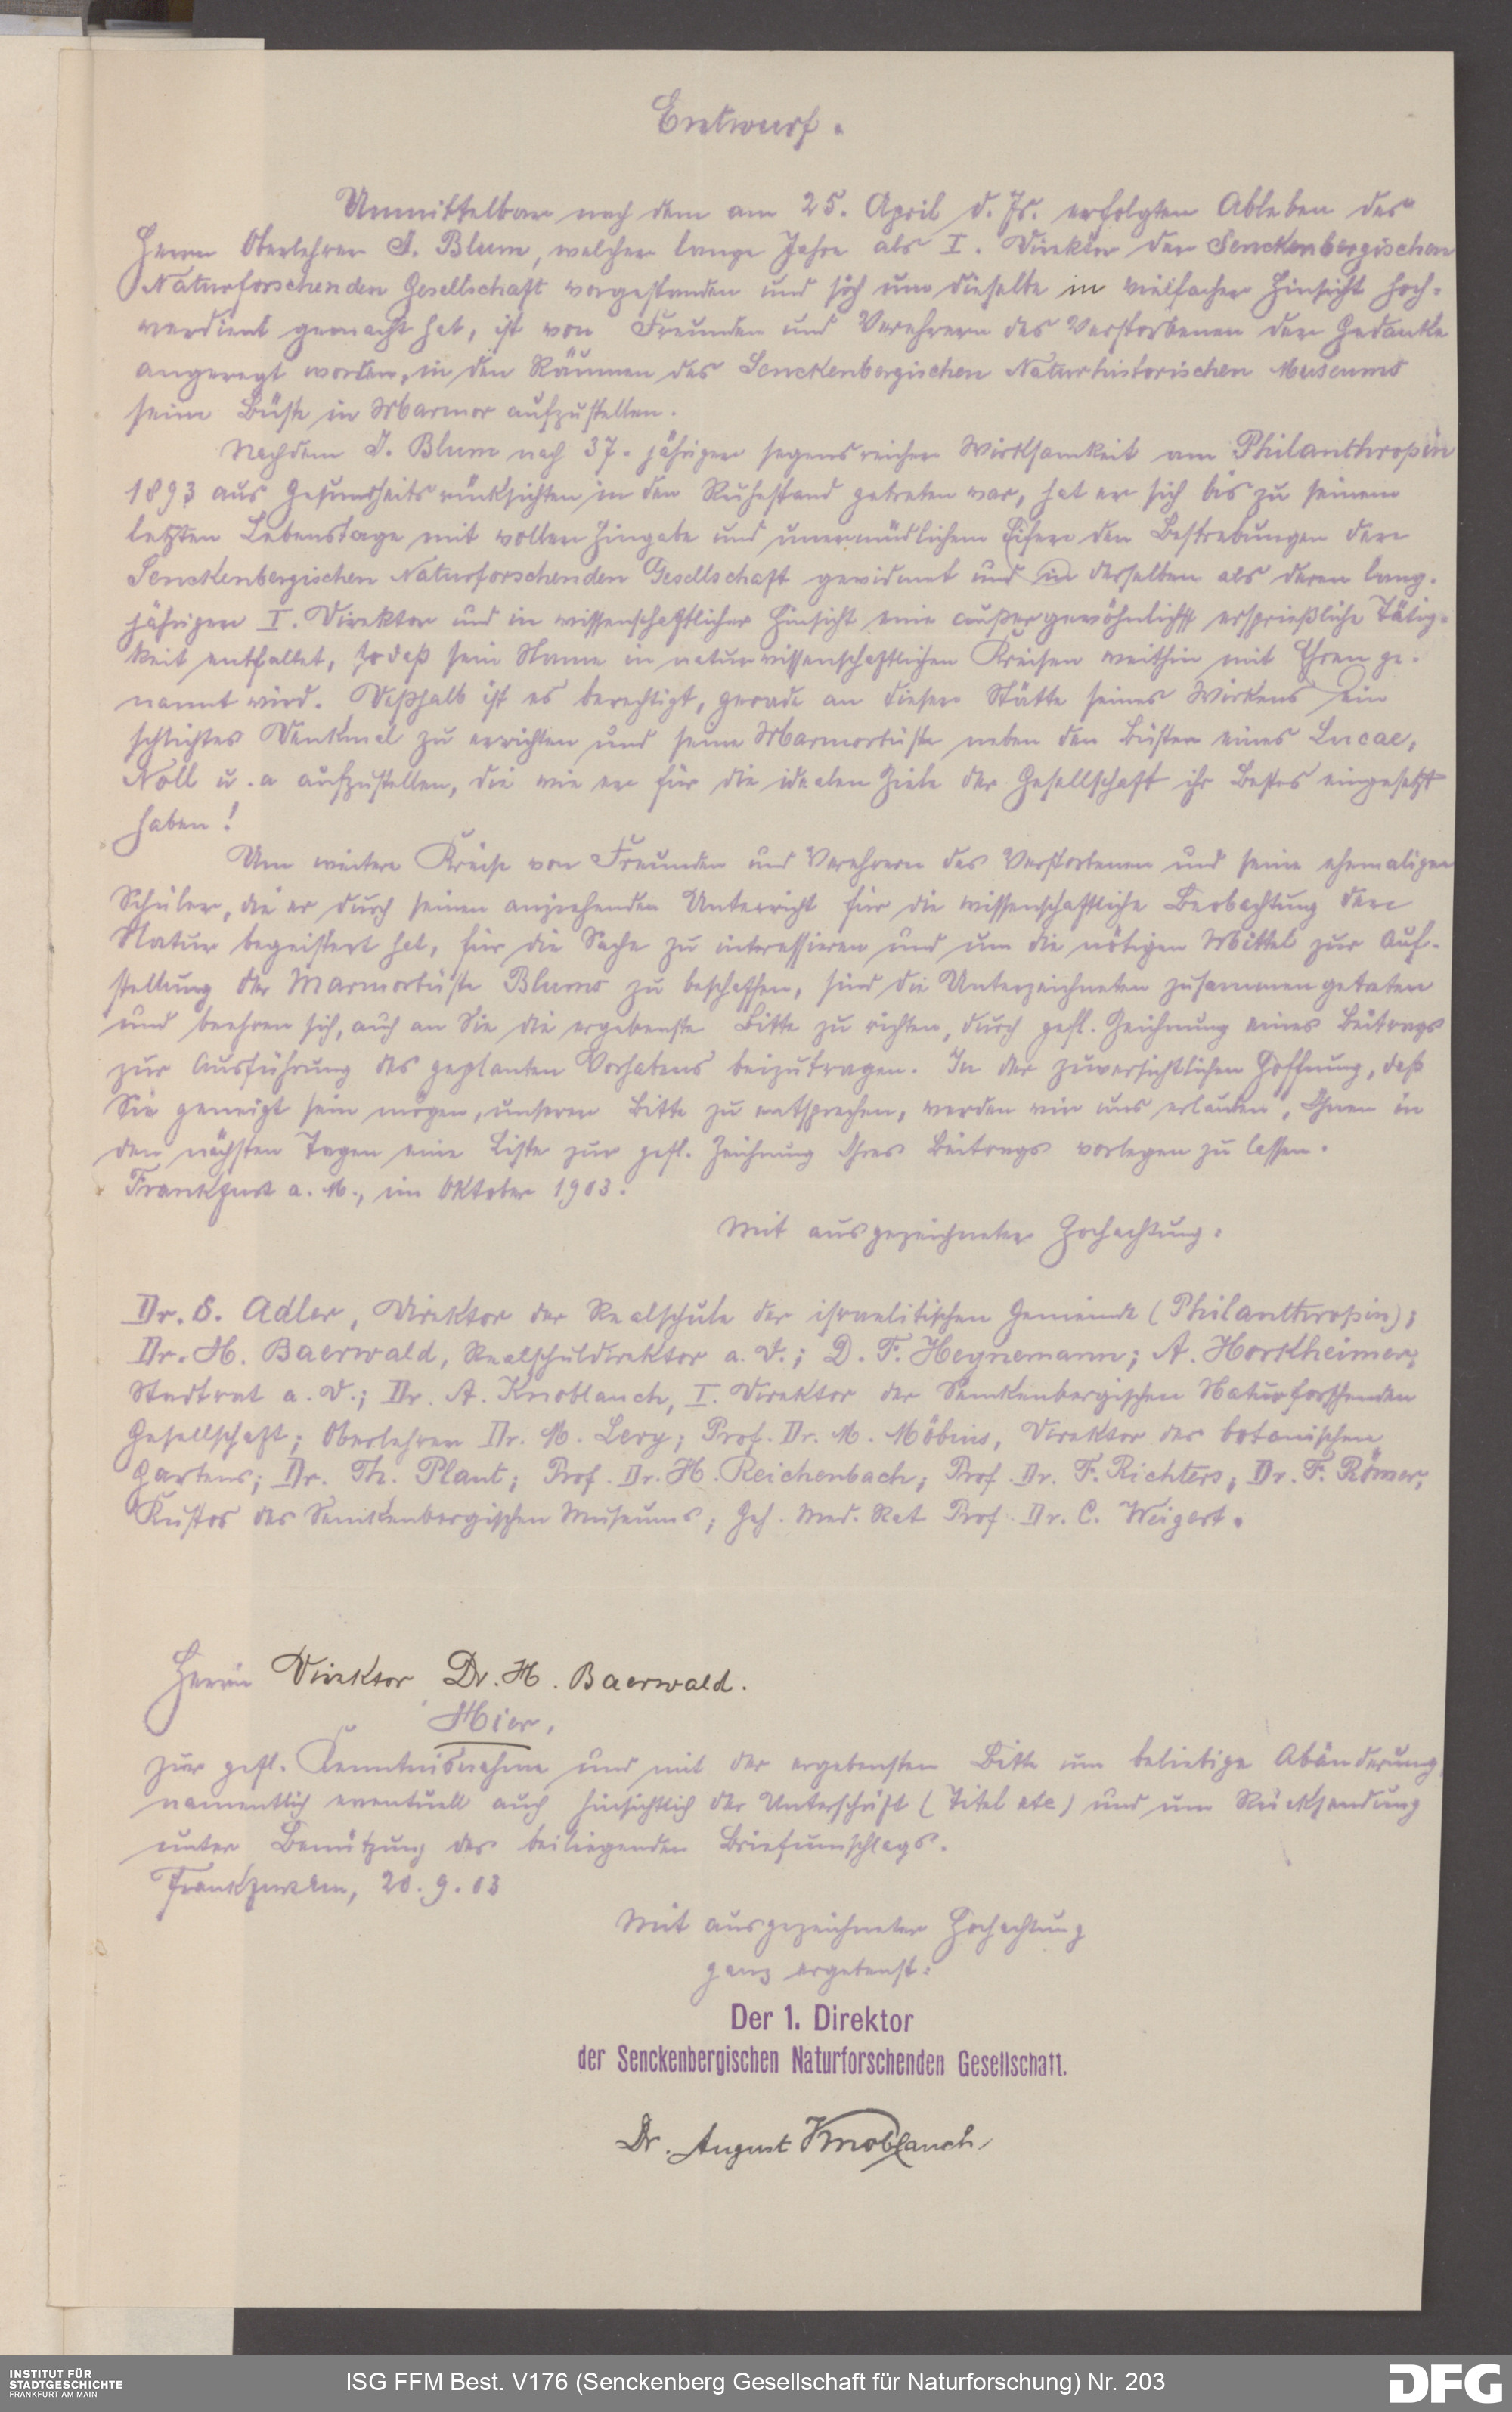 Entwurf.
Unmittelbar nach dem am 25. April d. Js. erfolgten Ableben des
Herrn Oberlehrer J. Blum, welcher lange Jahre als I. Direktor der Senckenbergischen
Naturforschenden Gesellschaft vorgestanden und sich um dieselbe in vielfacher Hinsicht hoch-
verdient gemacht hat, ist von Freunden und Verehrern des Verstorbenen der Gedanke
angeregt worden, in den Räumen des Senckenbergischen Naturhistorischen Museums
seine Büste in Marmor aufzustellen.
Nachdem J. Blum nach 37-jähriger segensreicher Wirksamkeit am Philanthropin
1893 aus Gesundheitsrücksichten in den Ruhestand getreten war, hat er sich bis zu seinem
letzten Lebenstage mit voller Hingabe und unermüdlichem Eifer den Bestrebungen der
Senckenbergischen Naturforschenden Gesellschaft gewidmet und in derselben als deren lang-
jähriger I. Direktor und in wissenschaftlicher Hinsicht eine außergewöhnlichst ersprießliche Tätig-
keit entfaltet, sodaß sein Name in naturwissenschaftlichen Kreisen weithin mit Ehren ge-
nannt wird. Deßhalb ist es berechtigt, gerade an dieser Stätte seines Wirkens ein
schlichtes Denkmal zu errichten und seine Marmorbüste neben den Büsten eines Lucae,
Noll u. a aufzustellen, die wie er für die idealen Ziele der Gesellschaft ihr Bestes eingesetzt
haben!
Um weitere Kreise von Freunden und Verehrern des Verstorbenen und seine ehemaligen
Schüler, die er durch seinen anziehenden Unterricht für die wissenschaftliche Beobachtung der
Natur begeistert hat, für die Sache zu interessieren und um die nötigen Mittel zur Auf-
stellung der Marmorbüste Blums zu beschaffen, sind die Unterzeichneten zusammengetreten
und beehren sich, auch an Sie die ergebenste Bitte zu richten, durch gefl. Zeichnung eines Beitrags
zur Ausführung des geplanten Vorhabens beizutragen. In der zuversichtlichen Hoffnung, daß
Sie geneigt sein mögen, unserer Bitte zu entsprechen, werden wir uns erlauben, Ihnen in
den nächsten Tagen eine Liste zur gefl. Zeichnung Ihres Beitrags vorlegen zu lassen.
Frankfurt a. M., im Oktober 1903.
Mit ausgezeichneter Hochachtung:
Dr. S. Adler, Direktor der Realschule der israelitischen Gemeinde (Philanthropin);
Dr. H. Baerwald, Realschuldirektor a. D.; D. F. Heynemann; A. Horkheimer,
Stadtrat a. D.; Dr. A. Knoblauch, I. Direktor der Senckenbergischen Naturforschenden
Gesellschaft; Oberlehrer Dr. M. Levy; Prof. Dr. M. Möbius, Direktor des botanischen
Gartens; Dr. Th. Plaut; Prof. Dr. H. Reichenbach; Prof. Dr. F. Richters; Dr. F. Römer,
Kustos des Senckenbergischen Museums; Geh. Med. Rat Prof. Dr. C. Weigert.
Herrn Direktor Dr. H. Baerwald.
Hier,
zur gefl. Kenntnisnahme und mit der ergebensten Bitte um beliebige Abänderung,
namentlich eventuell auch hinsichtlich der Unterschrift (Titel etc) und um Rücksendung
unter Benützung des beiliegenden Briefumschlags.
20. 9. 03
Mit ausgezeichneter Hochachtung
ganz ergebenst:
Der 1. Direktor
der Senckenbergischen Naturforschenden Gesellschaft.
Dr. August Knoblauch
INSTITUT FÜR
STADTGESCHICHTE
FRANKFURT AM MAIN
ISG FFM Best. V176 (Senckenberg Gesellschaft für Naturforschung) Nr. 203
DFG